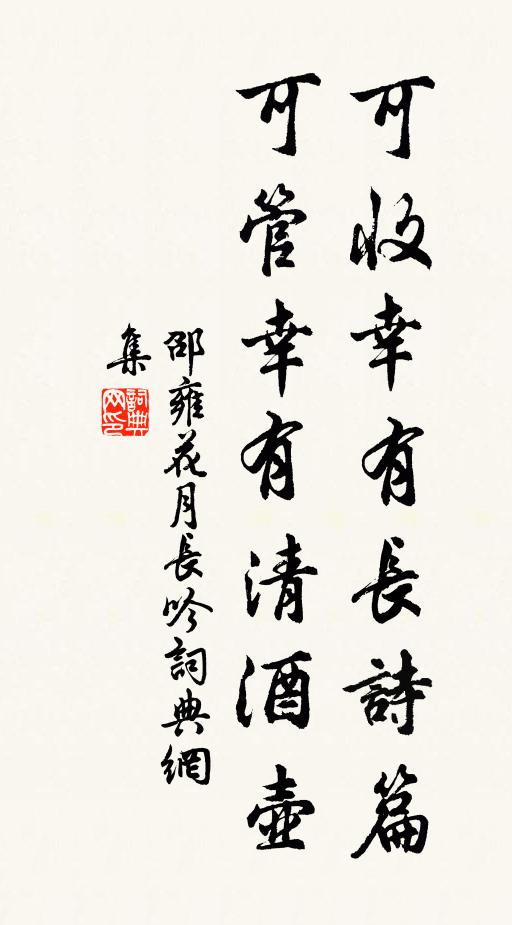 可收幸有長詩篇
可管幸有清酒壺
邵雍花月長吟詞典網
集
詞典網印